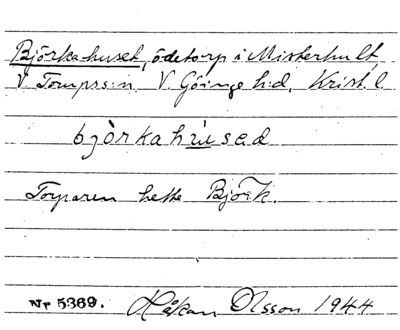 Björkahuset, ödetorp i Misterhult,
V Torups sn, V. Göinge h:d, Krist. l.
bjòrkahu̇sed
Torparen hette Björk.
Nr 5369. Håkan Olsson 1944